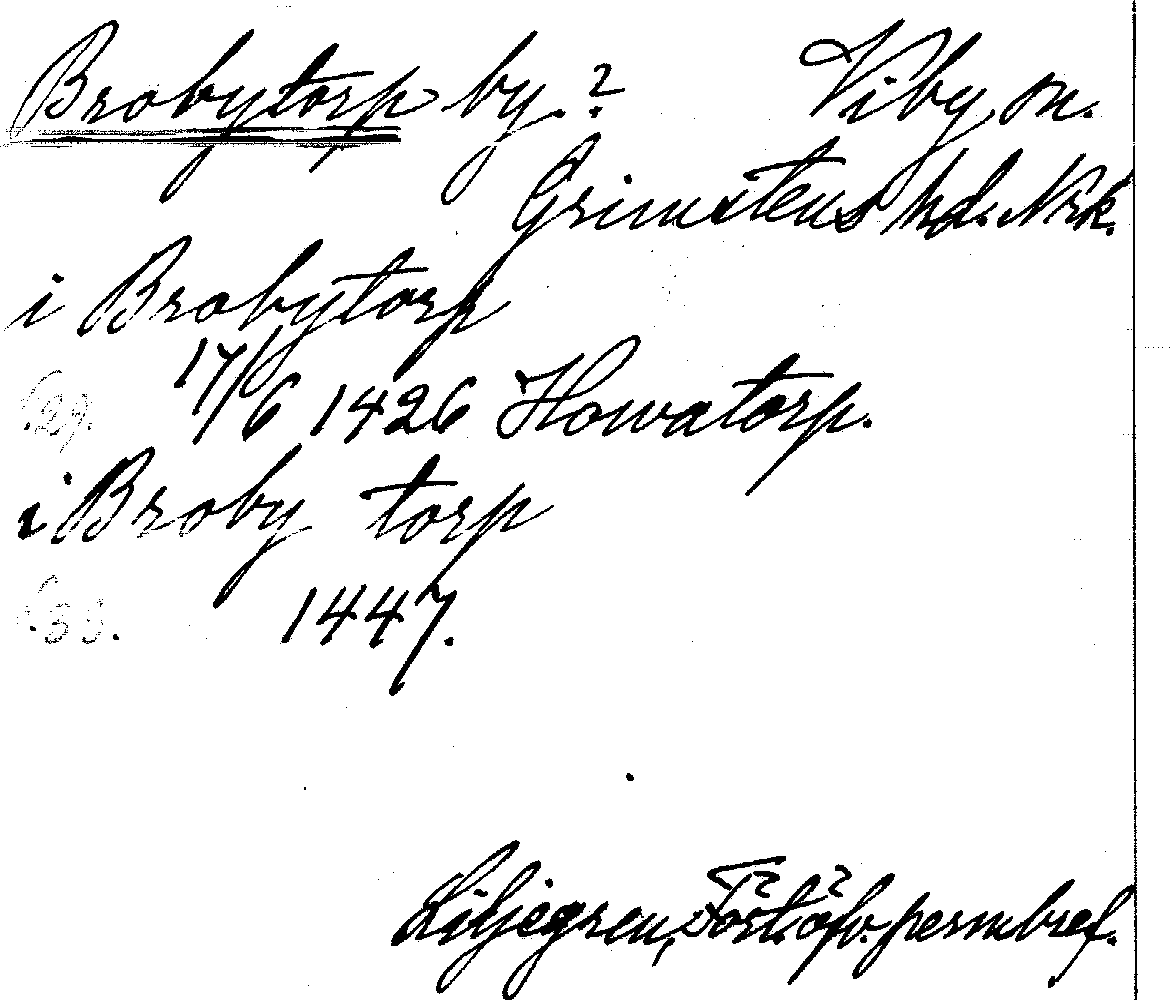 Brobytorp by.? Viby sn.
Grimstens hd. Nrk.
i Brobytorp
s. 29. 17/6 1426 Howatorp.
i Broby torp
s. 53. 1447.
Liljegren, Fört. öfv. permbref.